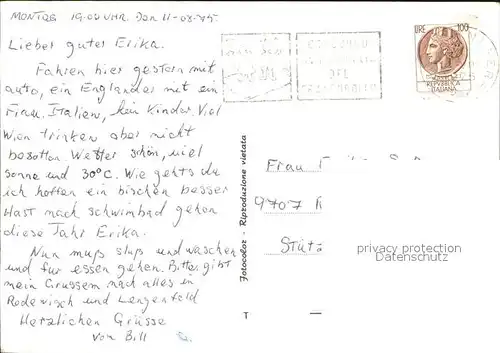 MONTAG 19.00 UHR. Den 11-08-75.
Lieber guter Erika.
Fahren hier gestern mit
auto, ein Englander mit ein
Frau. Italien, kein Kinder. Viel
Wien trinken aber nicht
besoffen. Wetter schön, viel
sonne und 30°C. Wie gehts du
ich hoffen ein bischen besser
Hast nach schwimbad gehen
diese Jahr Erika.
Nun muß stop und waschen
und für essen gehen. Bitte, gibt
mein Grussem nach alles in
Rodewisch und Lengenfeld
Herzlichen Grüsse
von Bill
LIRE 100
REPVBBLICA
ITALIANA
DEL
FRANCOBOLLO
Fotocolor - Riproduzione vietata
Frau
9707
Stütz
privacy protection
Datenschutz
T